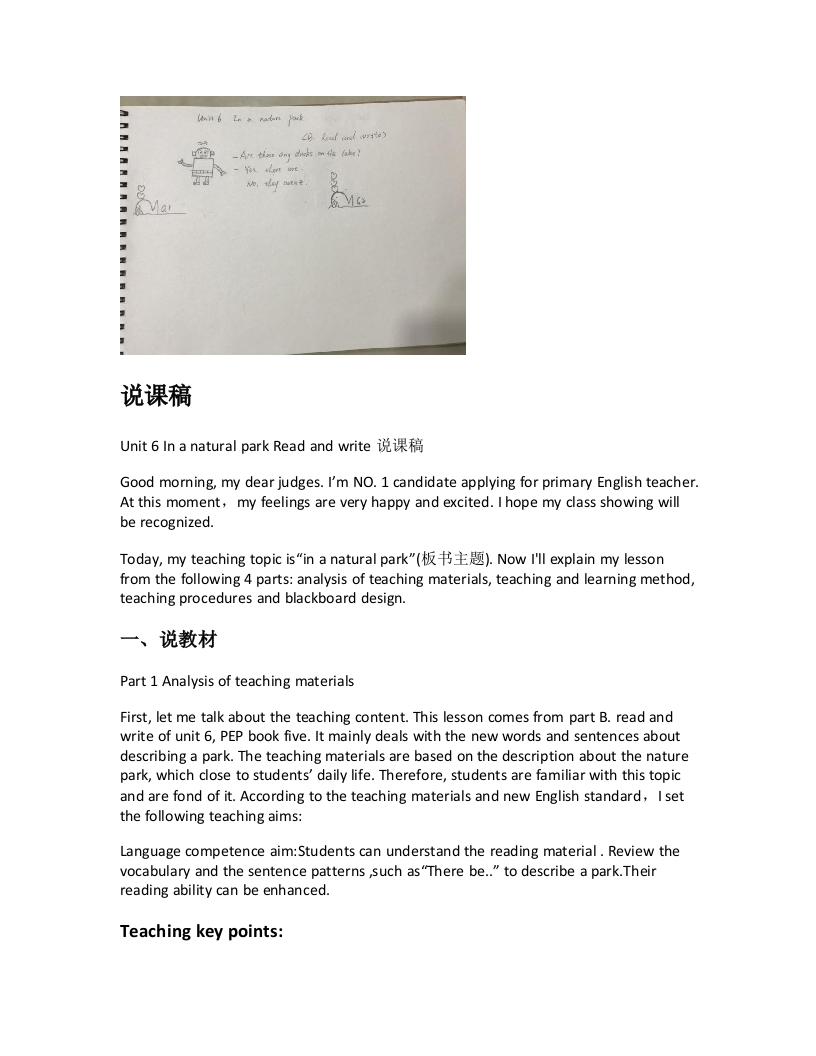 Unit 6 In a nature park
(B. Read and write)
- Are there any ducks on the lake?
- Yes, there are.
No, they aren't.
说课稿
Unit 6 In a natural park Read and write 说课稿
Good morning, my dear judges. I’m NO. 1 candidate applying for primary English teacher.
At this moment，my feelings are very happy and excited. I hope my class showing will
be recognized.
Today, my teaching topic is“in a natural park”(板书主题). Now I'll explain my lesson
from the following 4 parts: analysis of teaching materials, teaching and learning method,
teaching procedures and blackboard design.
一、说教材
Part 1 Analysis of teaching materials
First, let me talk about the teaching content. This lesson comes from part B. read and
write of unit 6, PEP book five. It mainly deals with the new words and sentences about
describing a park. The teaching materials are based on the description about the nature
park, which close to students’ daily life. Therefore, students are familiar with this topic
and are fond of it. According to the teaching materials and new English standard，I set
the following teaching aims:
Language competence aim:Students can understand the reading material . Review the
vocabulary and the sentence patterns ,such as“There be..” to describe a park.Their
reading ability can be enhanced.
Teaching key points: